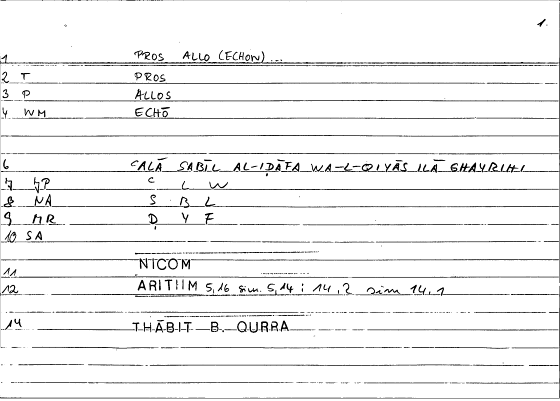 1.
1 PROS ALLO (ECHON)...
2 T PROS
3 P ALLOS
4 WM ECHŌ
6 ʿALĀ SABĪL AL-IḌĀFA WA-L-QIYĀS ILĀ GHAYRIHI
7 JP ʿ L W
8 NA S B L
9 MR Ḍ Y F
10 SA
11 NICOM
12 ARITIIM 5,16 sim. 5,14; 14,2 sim 14,1
14 THĀBIT B. QURRA